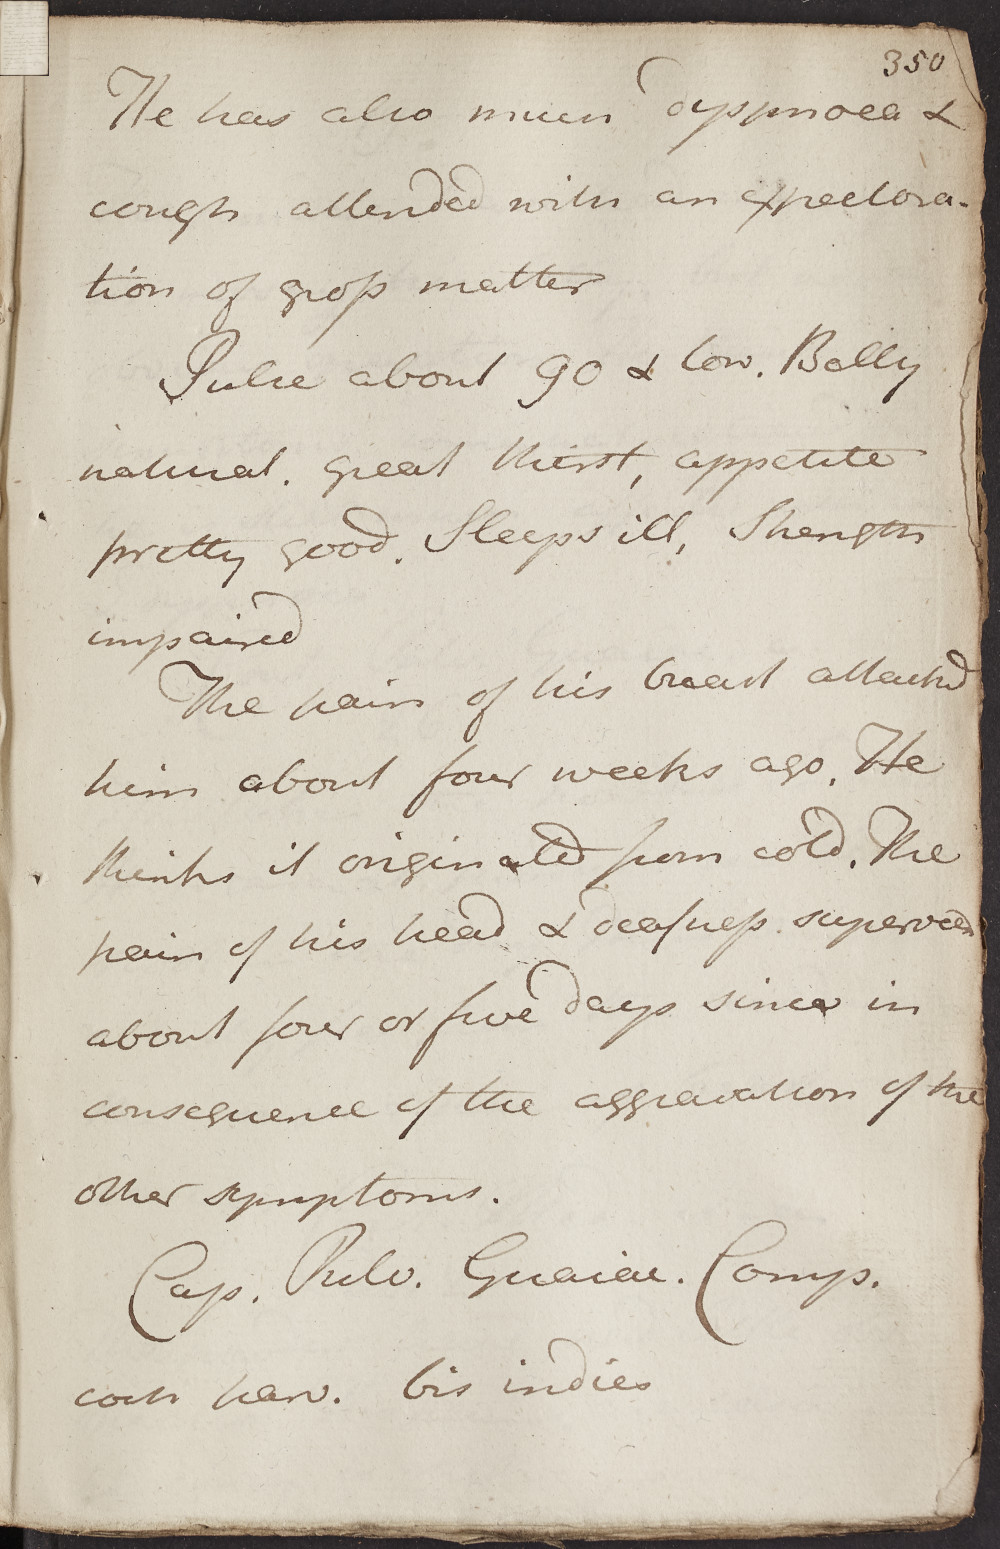 350
He has also much dyspnoea &
cough attended with an expectora-
tion of gross matter
Pulse about 90 & low. Belly
natural. great thirst, appetite
pretty good. Sleeps ill, Strength
impaired
The pain of his breast attacked
him about four weeks ago. He
thinks it originated from cold. The
pain of his head & deafness superveened
about four or five days since in
consequence of the aggravation of the
other symptoms.
Cap. Pulv. Guaiac. Comp.
coch parv. bis indies